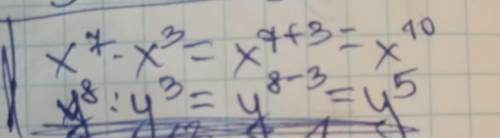 x⁷ · x³ = x⁷⁺³ = x¹⁰
y⁸ : y³ = y⁸⁻³ = y⁵